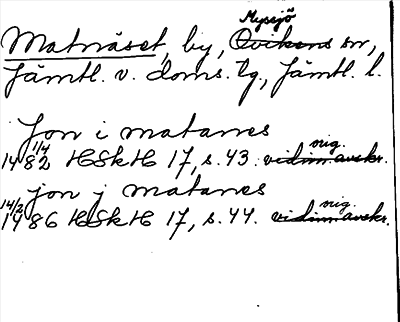 Myssjö
Matnäset, by, Ovikens sn,
Jämtl. v. doms. tg, Jämtl. l.
Jon i matanes
1/4 orig.
1482 HSkH 17, s. 43. vidim avskr.
jon j matanes
14/2 orig.
1486 HSkH 17, s. 44. vidim avskr.